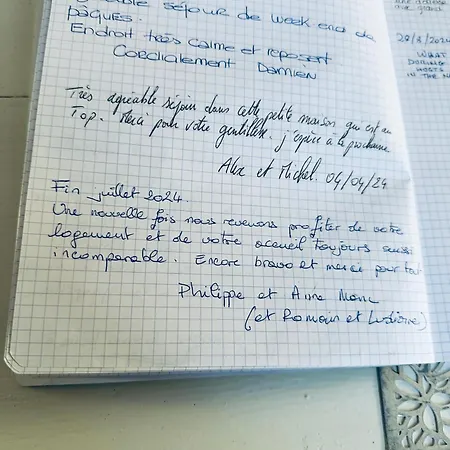 séjour de week end de
pâques.
Endroit très calme et reposant
Cordialement Damien
Très agréable séjour dans cette petite maison qui est au
Top. Merci pour votre gentillesse. j'espère à la prochaine
Alex et Michel. 04/04/24
Fin juillet 2024.
Une nouvelle fois nous revenons profiter de votre
logement et de votre accueil toujours aussi
incomparable. Encore bravo et merci pour tout
Philippe et Anne Marie
(et Romain et Ludivine)
28/8/2024
WHAT
HOSTS
IN THE